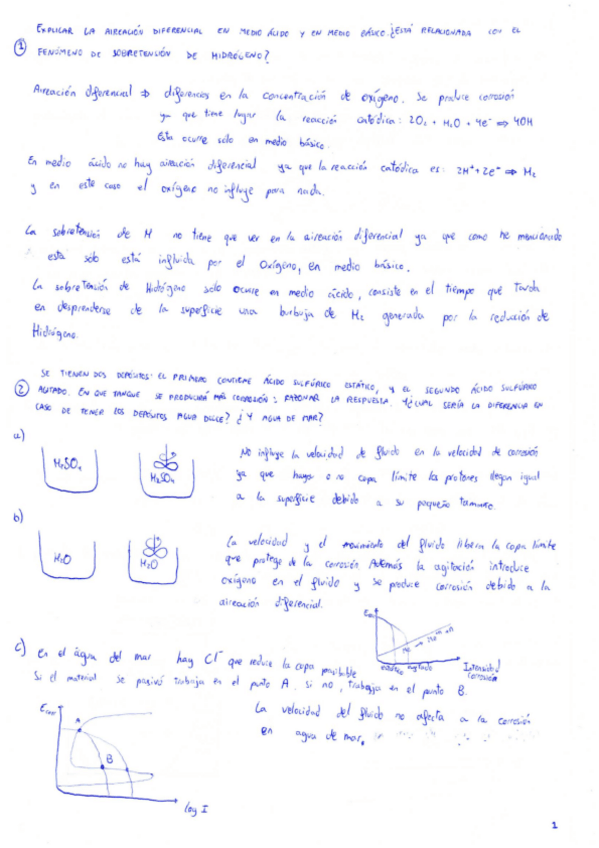 EXPLICAR LA AIREACIÓN DIFERENCIAL EN MEDIO ÁCIDO Y EN MEDIO BÁSICO. ¿ESTÁ RELACIONADA CON EL
① FENÓMENO DE SOBRETENCIÓN DE HIDRÓGENO?
Aireación diferencial ⇒ diferencias en la concentración de oxígeno. Se produce corrosión
ya que tiene lugar la reacción catódica: 2O₂ + H₂O + 4e⁻ ⇒ 4OH
Esta ocurre sólo en medio básico.
En medio ácido no hay aireación diferencial ya que la reacción catódica es: 2H⁺+2e⁻ ⇒ H₂
y en este caso el oxígeno no influye para nada.
La sobretensión de H no tiene que ver en la aireación diferencial ya que como he mencionado
esta sólo está influida por el Oxígeno, en medio básico.
La sobretensión de Hidrógeno solo ocurre en medio ácido, consiste en el tiempo que Tarda
en desprenderse de la superficie una burbuja de H₂ generada por la reducción de
Hidrógeno.
SE TIENEN DOS DEPÓSITOS: EL PRIMERO CONTIENE ÁCIDO SULFÚRICO ESTÁTICO, Y EL SEGUNDO ÁCIDO SULFÚRICO
② AGITADO. EN QUE TANQUE SE PRODUCIRÁ MÁS CORROSIÓN: RAZONAR LA RESPUESTA. Y ¿CUAL SERÍA LA DIFERENCIA EN
CASO DE TENER LOS DEPÓSITOS AGUA DULCE? ¿Y AGUA DE MAR?
a)
H₂SO₄
H₂SO₄
No influye la velocidad de fluido en la velocidad de corrosión
ya que haya o no capa límite los protones llegan igual
a la superficie debido a su pequeño tamaño.
b)
H₂O
H₂O
La velocidad y el movimiento del fluido libera la capa límite
que protege de la corrosión. Además la agitación introduce
oxígeno en el fluido y se produce corrosión debido a la
aireación diferencial.
estático agitado
Intensidad
corrosión
c) En el água del mar hay Cl⁻ que reduce la capa pasivable
Si el material se pasivó trabaja en el punto A, si no, trabaja en el punto B.
La velocidad del fluido no afecta a la corrosión
en agua de mar.
A
B
log I
1